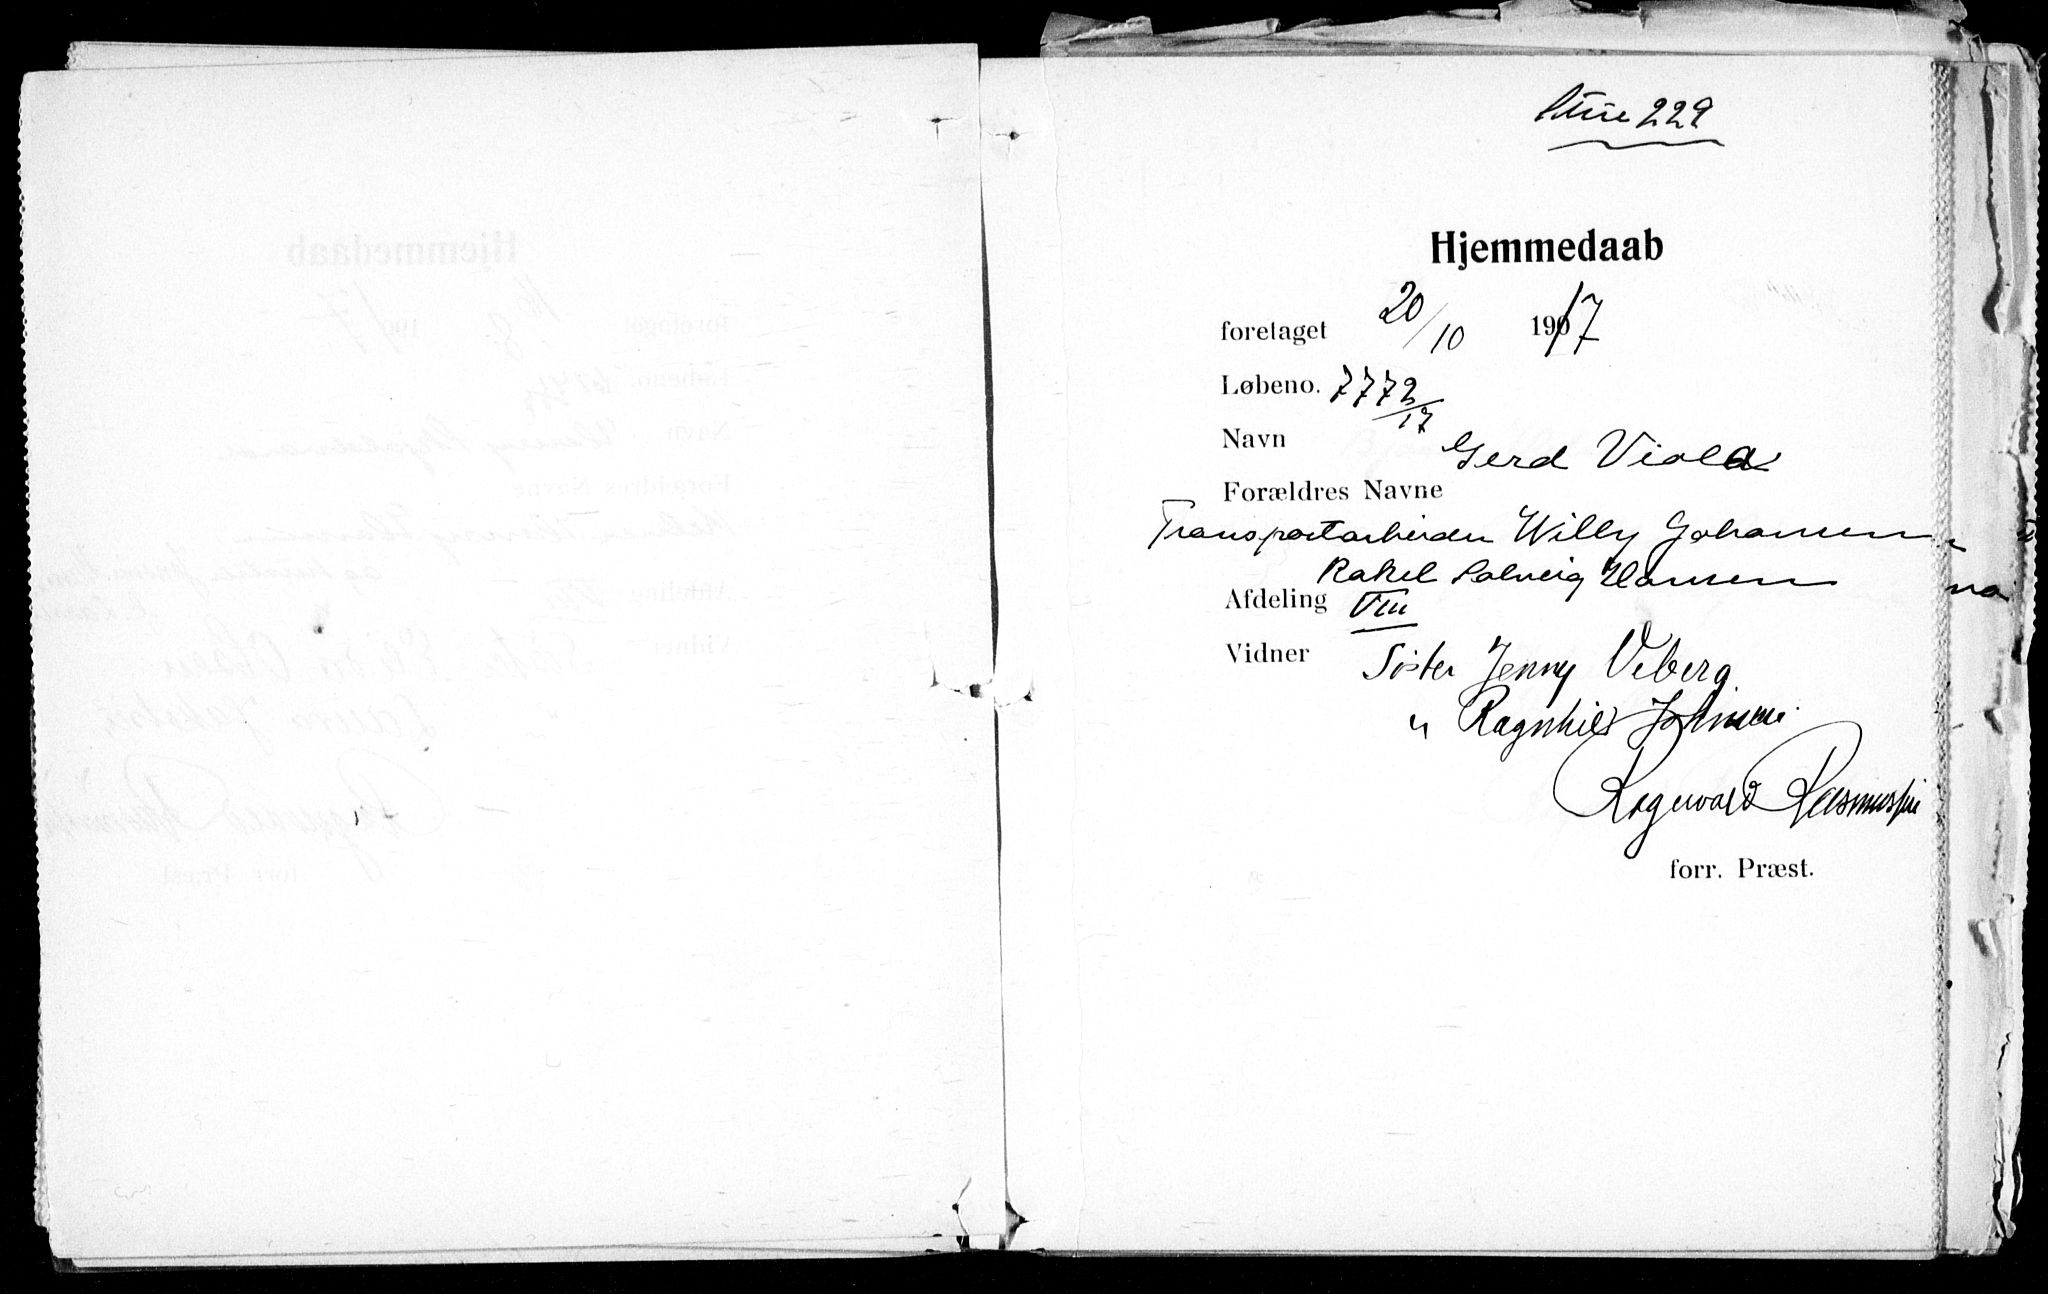 229
Hjemmedaab
foretaget 20/10 1917
Løbeno. 7772/17
Navn Gerd Viola
Forældres Navne
Transportarbeider Willy Johansen
Rakel Solveig Hansen
Afdeling VIII
Vidner Søster Jenny Viberg
" Ragnhild Johnsen
Ragnvald Rasmussen
forr. Præst.